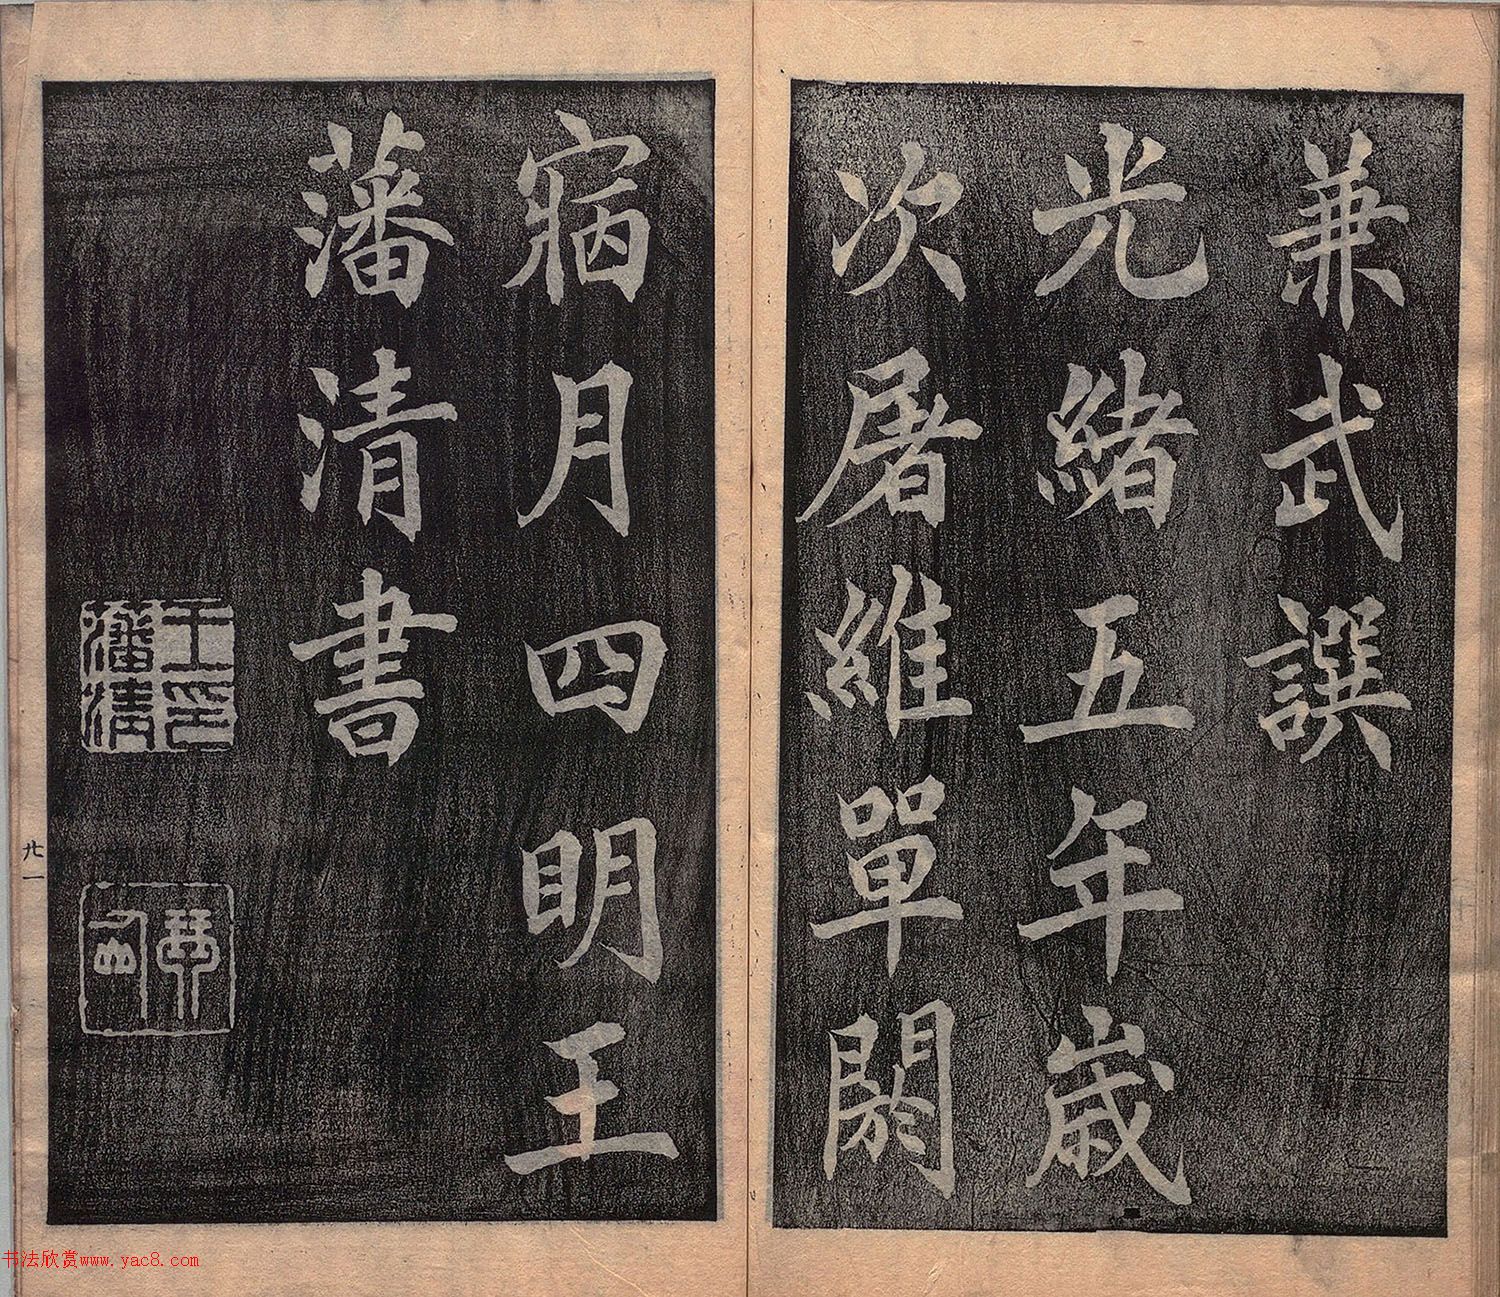 兼武譔
光緒五年歲
次屠維單閼
寎月四明王
藩清書
王印
藩清
廿一
书法欣赏www.yac8.com